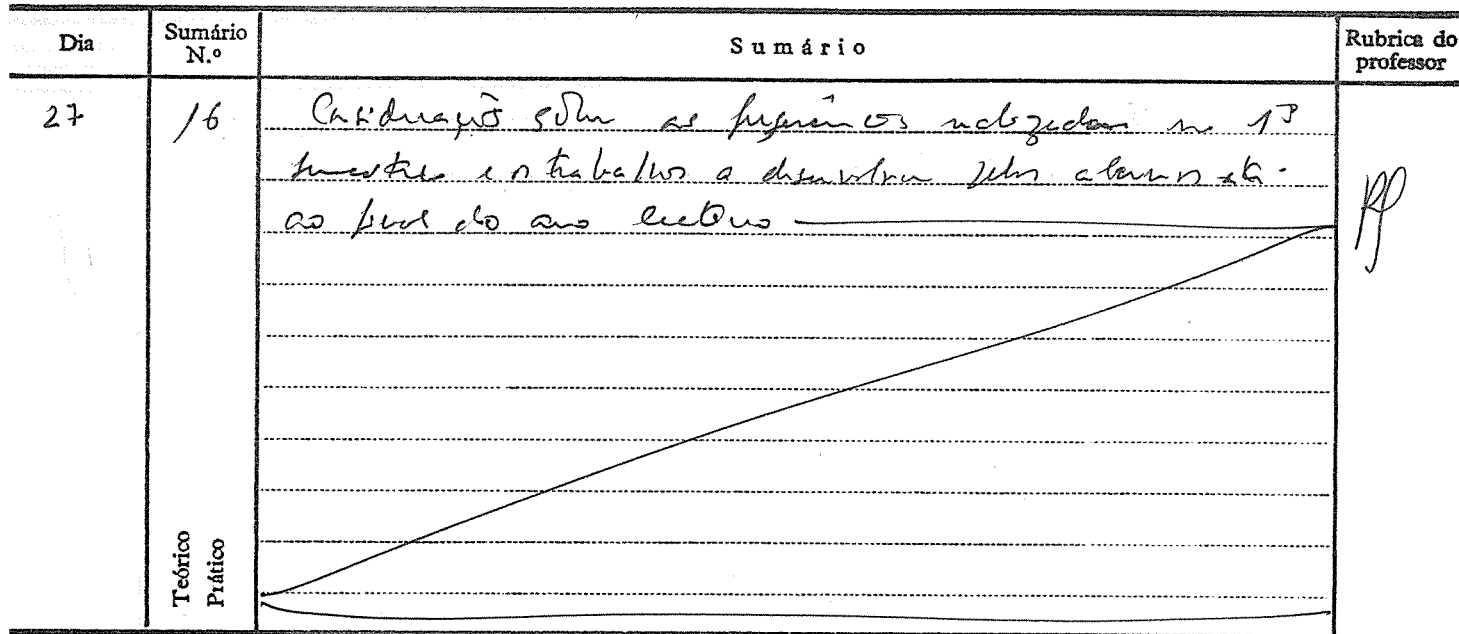 Dia
Sumário N.º
Sumário
Rubrica do professor
27
16
Considerações sobre as frequências realizadas no 1º
semestre e os trabalhos a desenvolver pelos alunos até
ao final do ano lectivo
Teórico
Prático